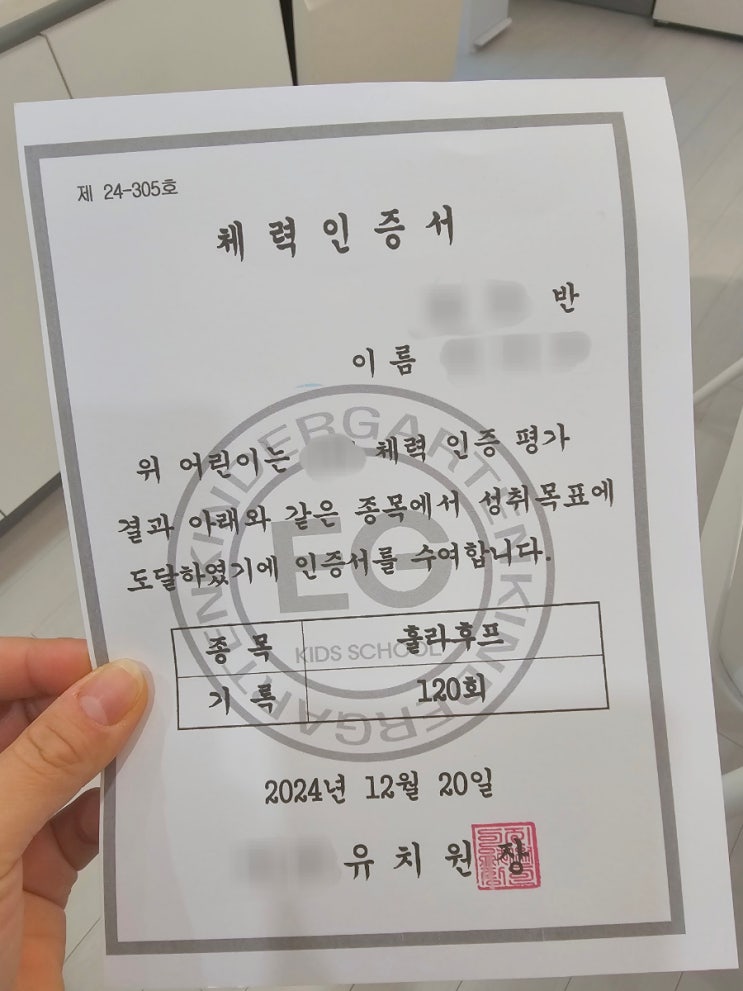 제 24-305호
체력인증서
반
이름
위 어린이는 체력 인증 평가
결과 아래와 같은 종목에서 성취목표에
도달하였기에 인증서를 수여합니다.
종목 훌라후프
기록 120회
2024년 12월 20일
유치원장
KINDERGARTEN KINDERGARTEN
EG
KIDS SCHOOL